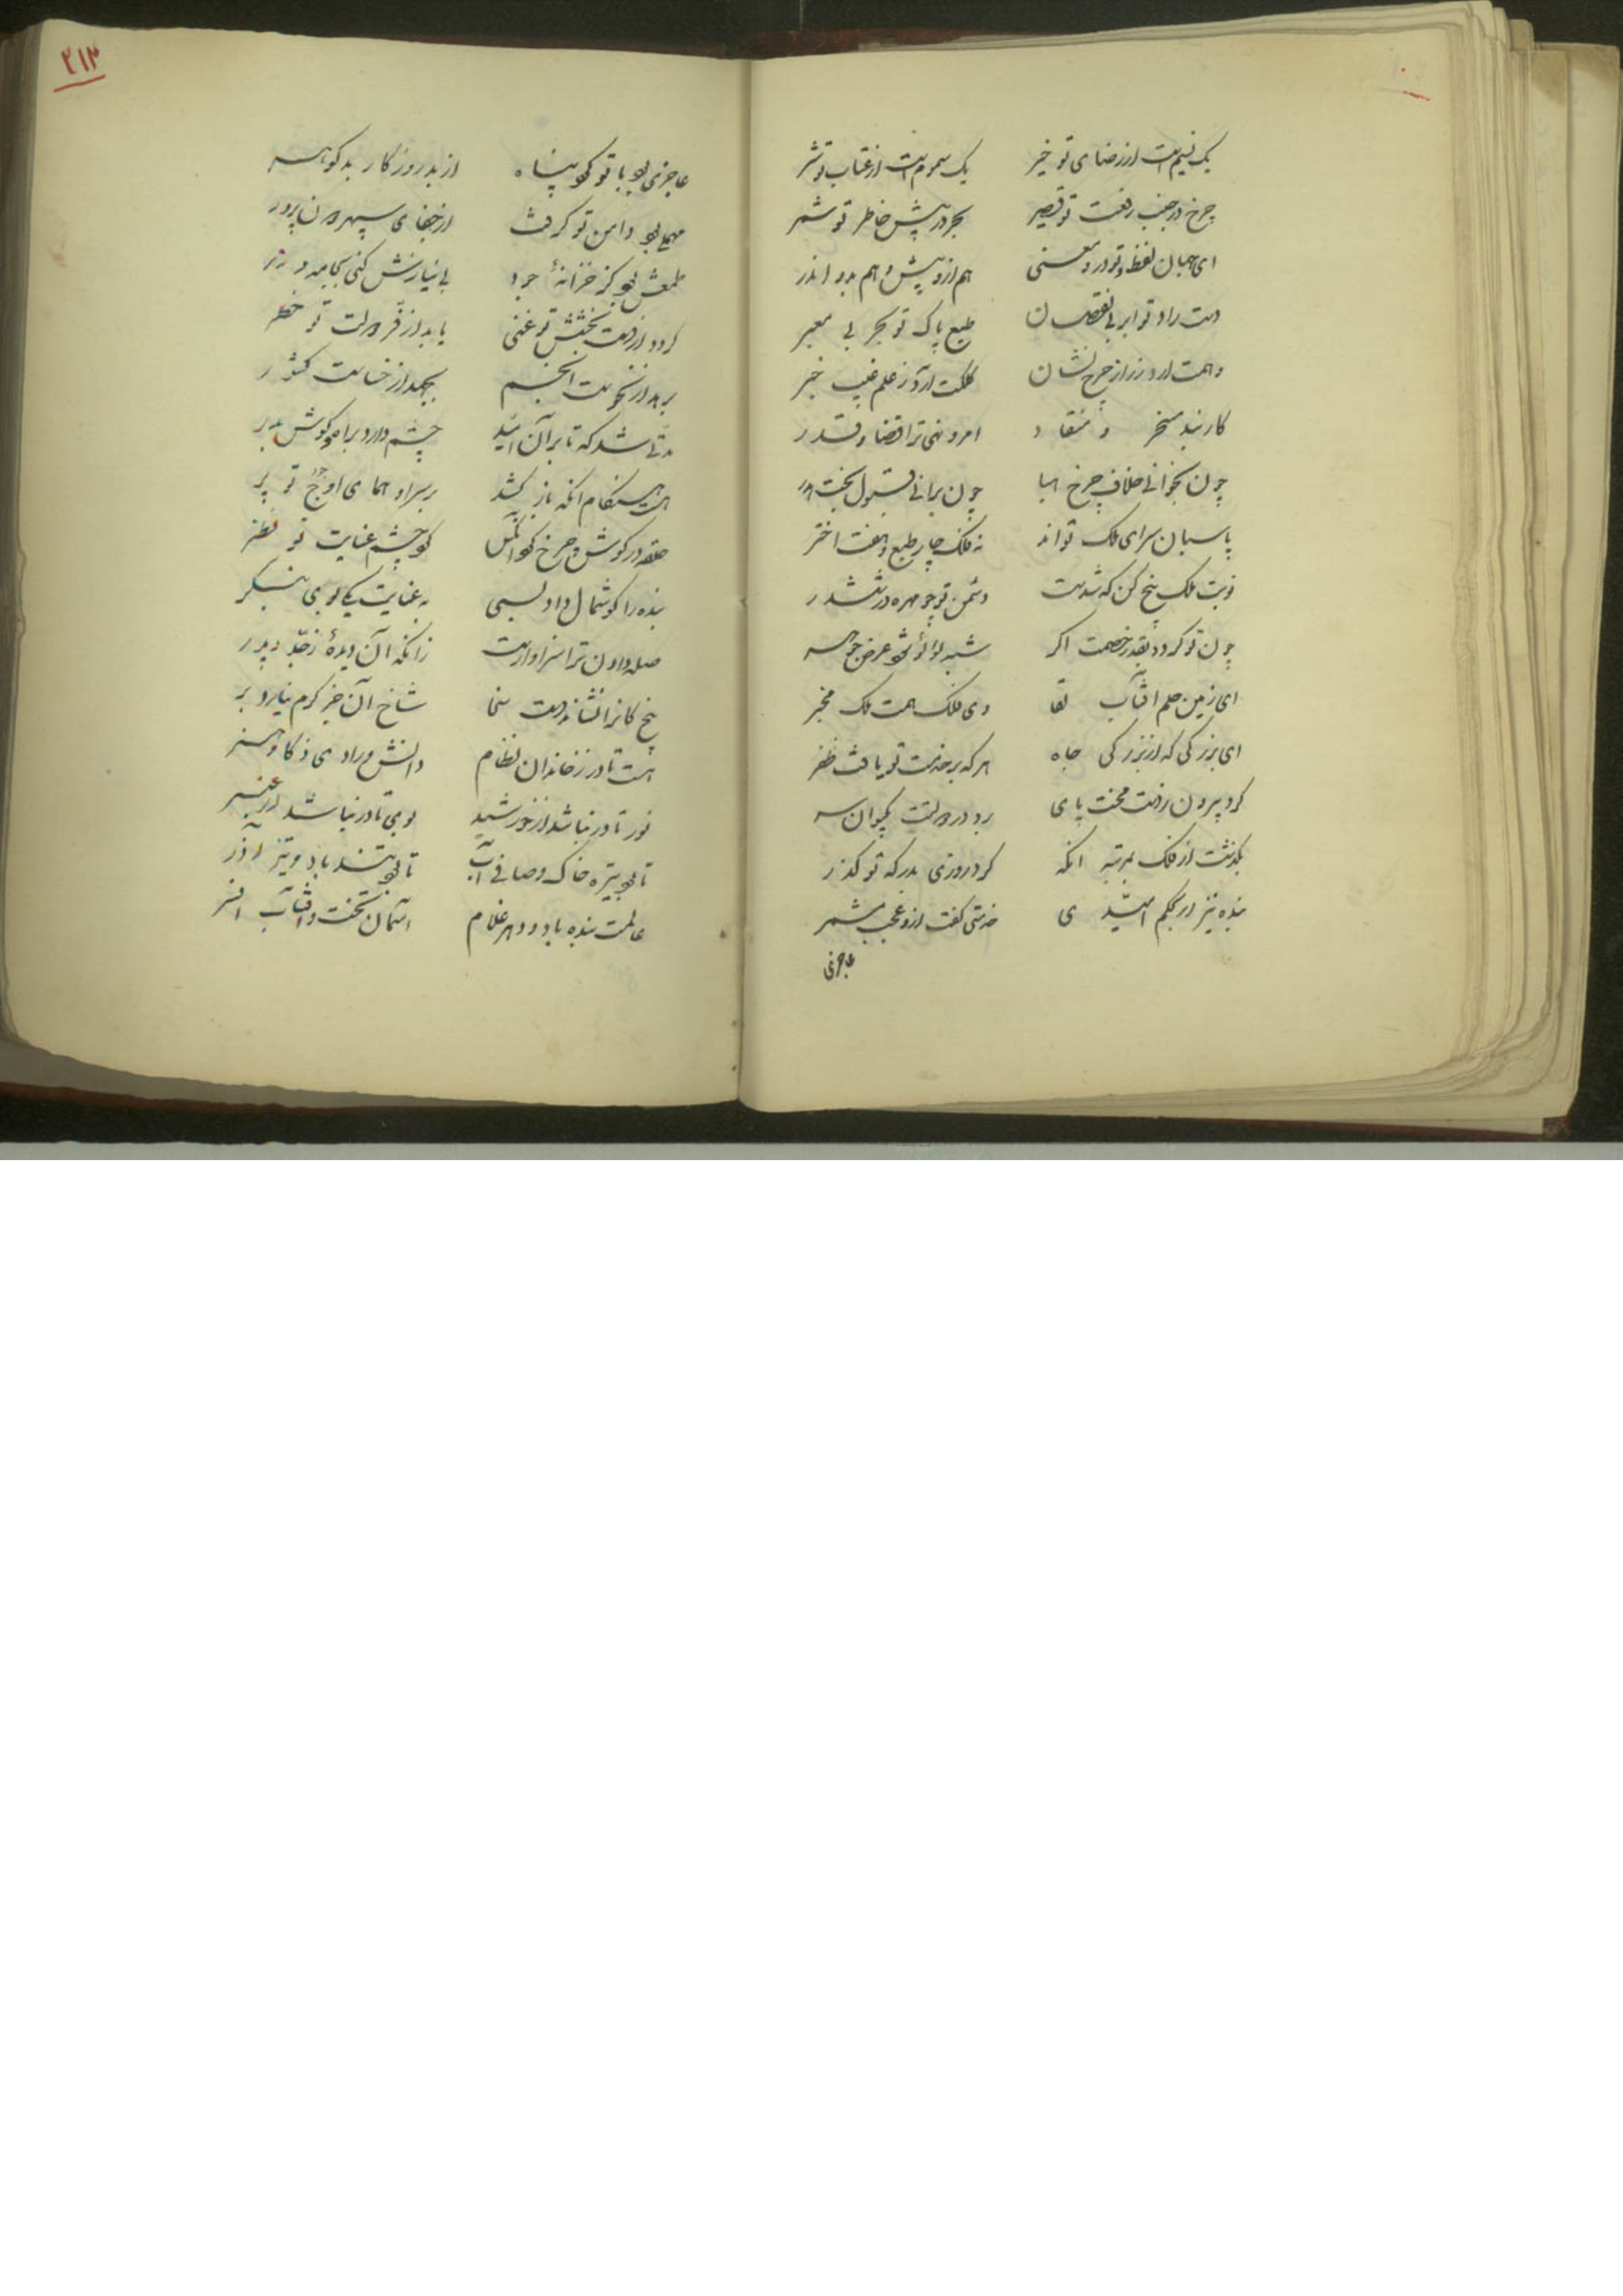 یک نسیم است از رضای تو خیر یک سموم است از عتاب تو شر
چرخ در جنب رفعت تو قصیر بحر در پیش خاطر تو شمر
ای جهان لفظ و تو درو معنی هم ازو پیش و هم بدو اندر
دست راد تو ابر بی نقصان طبع پاک تو بحر بی معبر
وهمت آرد ز راز چرخ نشان کلکت آرد ز علم غیب خبر
کارنبد مسخر و منقاد امر و نهی ترا قضا و قدر
چون بخوانی خلاف چرخ هبا چون برانی قبول بخت هدر
پاسبان سرای ملک تواند نه فلک چار طبع و هفت اختر
نوبت ملک پنج کن که شدست دشمن تو چو مهره در ششدر
چون تو گردد بقدر خصمت اگر شبه لؤلؤ شود عرض جوهر
ای زمین حلم آفتاب لقا وی فلک همت ملک مخبر
ای بزرگی که از بزرگی جاه هر که بر خدمت تو یافت ظفر
کرد بیرون ز دست محنت پای برد در دولتت بکیوان سر
بگذشت از فلک بمرتبه آنکه کرد روزی بدرگه تو گذر
بنده نیز ار بحکم امیدی خدمتی گفت ازو عجب مشمر
عاجزی
۲۱۳
عاجزی بود با تو کرد پناه از بد روزگار بدگوهر
مهملی بود دامن تو گرفت از جفای سپهر دون پرور
طمعش بود کز خزانهٔ جود بی نیازش کنی بجامه و زر
گردد از دست بخشش تو غنی یابد از فر دولت تو خطر
برهد از نحوست انجم بجهد از خساست کشور
مدتی شد که تا برآن امید چشم دارد براه و گوش بدر
هست هنگام آنکه باز کشد بر سر او همای اوج تو پر
حلقه در گوش چرخ کرد آنکس کرد چشم عنایت تو نظر
بنده را گوشمال داد بسی به عنایت یکی بوی بنگر
صله دادن ترا سزاوارست زانکه آن دیدهٔ ز جد و پدر
بیخ کانرا نشاند دست سخا شاخ آن جز کرم نیارد بر
هست نادر ز خاندان نظام دانش و رادی و ذکا و هنر
نور نادر نباشد از خورشید بوی نادر نباشد از عنبر
تا بود تیره خاک و صافی آب تا بود تند باد و تیز آذر
عالمت بنده باد و دهر غلام آسمان تخت و آفتاب افسر